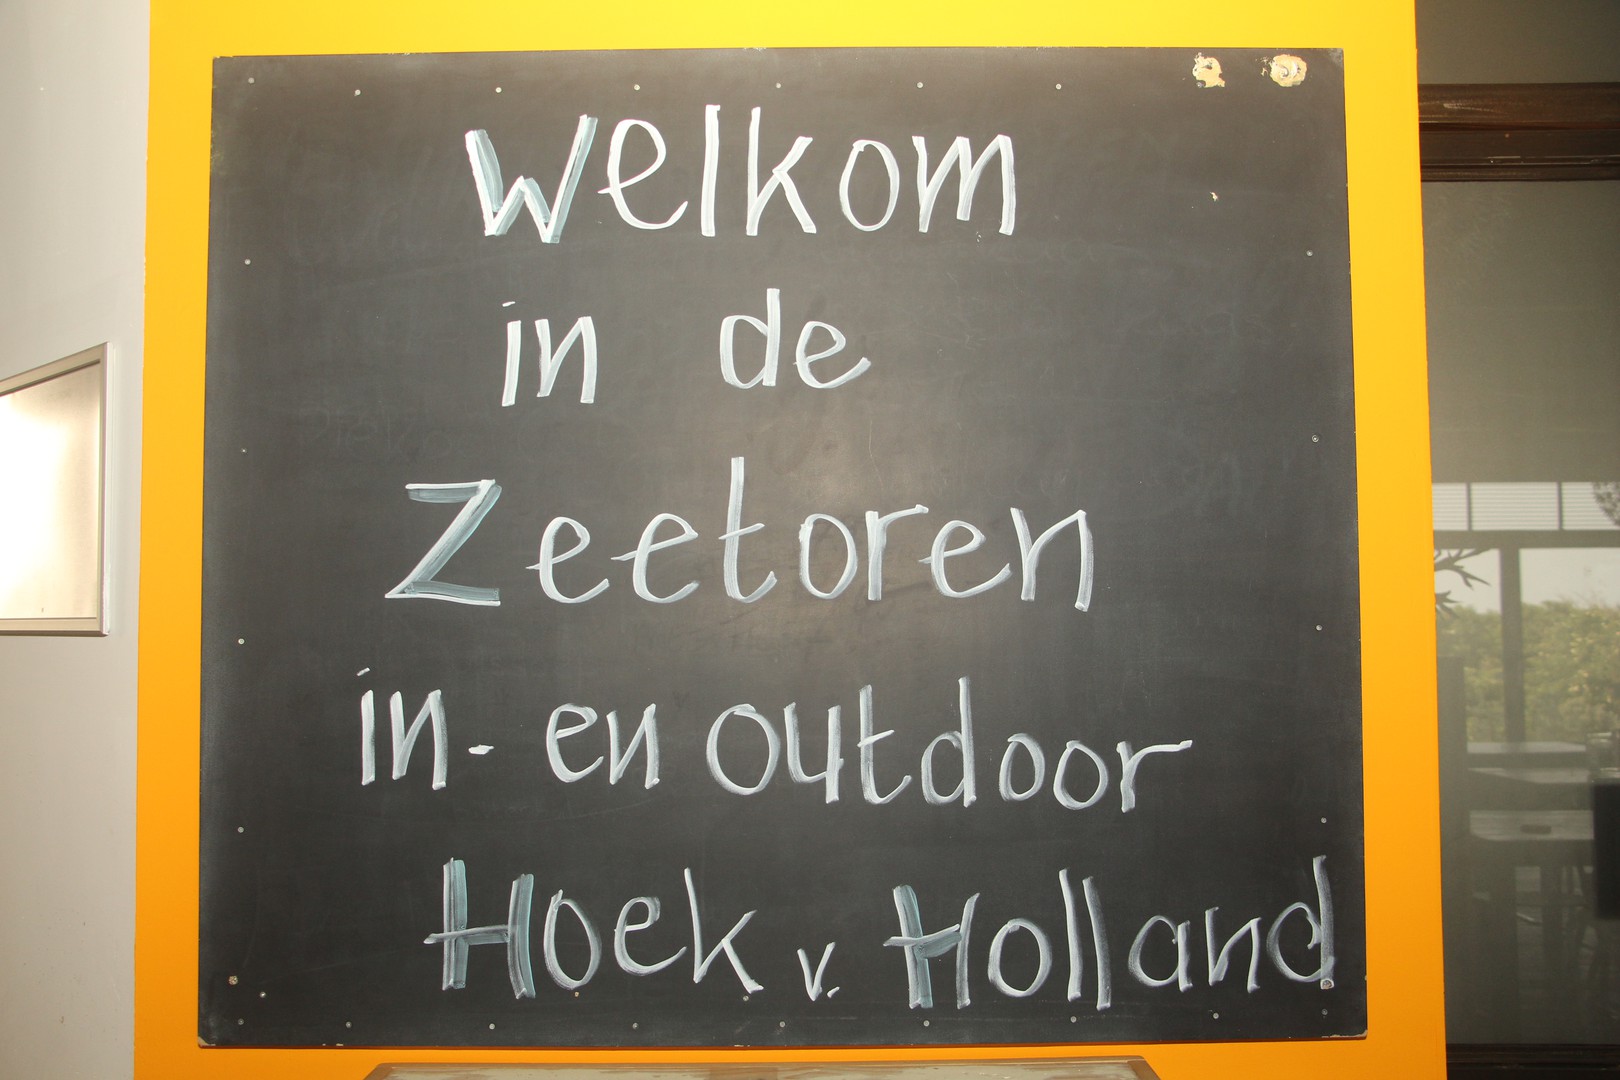 Welkom
in de
Zeetoren
in- en outdoor
Hoek v. Holland